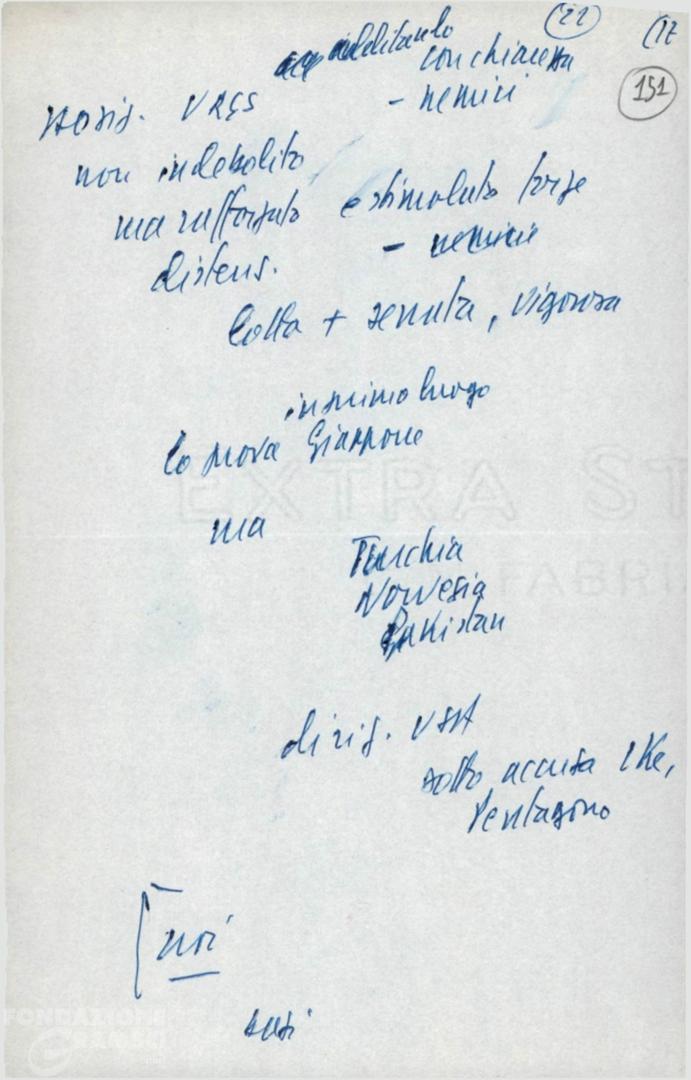 22
17
151
additando
con chiarezza
- nemici
Posiz. URSS
non indebolito
ma rafforzato e stimolato forze
- nemici
distens.
lotta + serrata, vigorosa
in primo luogo
lo prova Giappone
ma
Turchia
Norvegia
Pakistan
dirig. USA
sotto accusa Ike,
Pentagono
noi
EXTRA ST
FABRI
FONDAZIONE
GRAMSCI